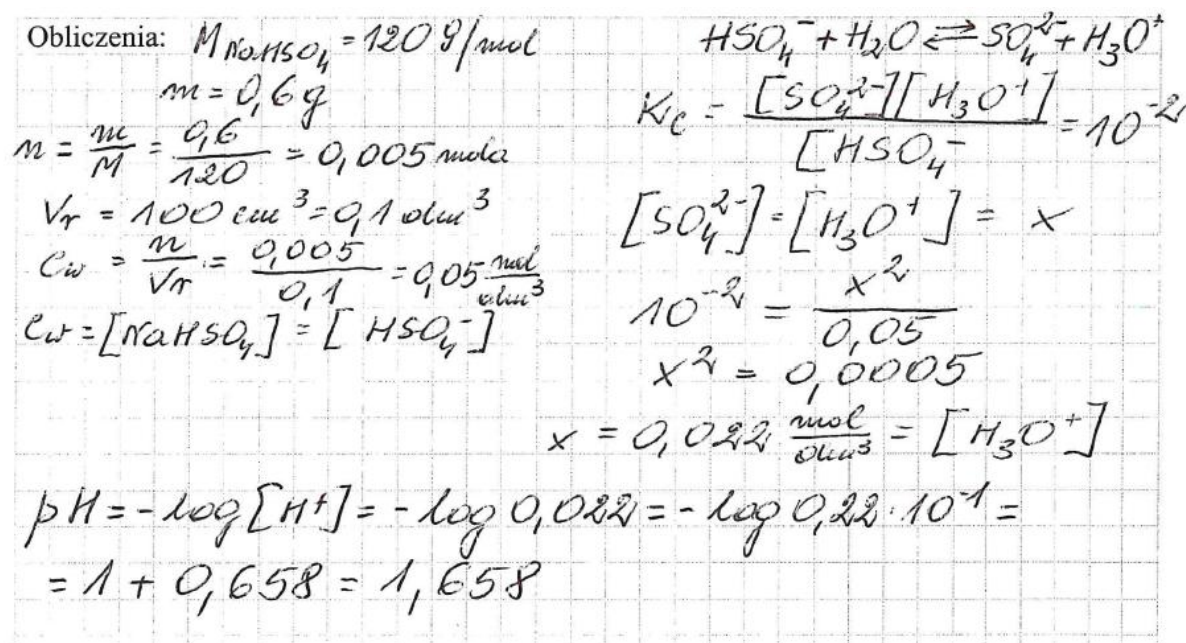 Obliczenia: M NaHSO₄ = 120 g/mol
m = 0,6 g
n = m/M = 0,6/120 = 0,005 mola
Vr = 100 cm³ = 0,1 dm³
Cw = n/Vr = 0,005/0,1 = 0,05 mol/dm³
Cw = [NaHSO₄] = [HSO₄⁻]
HSO₄⁻ + H₂O ⇄ SO₄²⁻ + H₃O⁺
Kc = [SO₄²⁻][H₃O⁺]/[HSO₄⁻ = 10⁻²
[SO₄²⁻] = [H₃O⁺] = x
10⁻² = x²/0,05
x² = 0,0005
x = 0,022 mol/dm³ = [H₃O⁺]
pH = -log[H⁺] = -log 0,022 = -log 0,22·10⁻¹ =
= 1 + 0,658 = 1,658